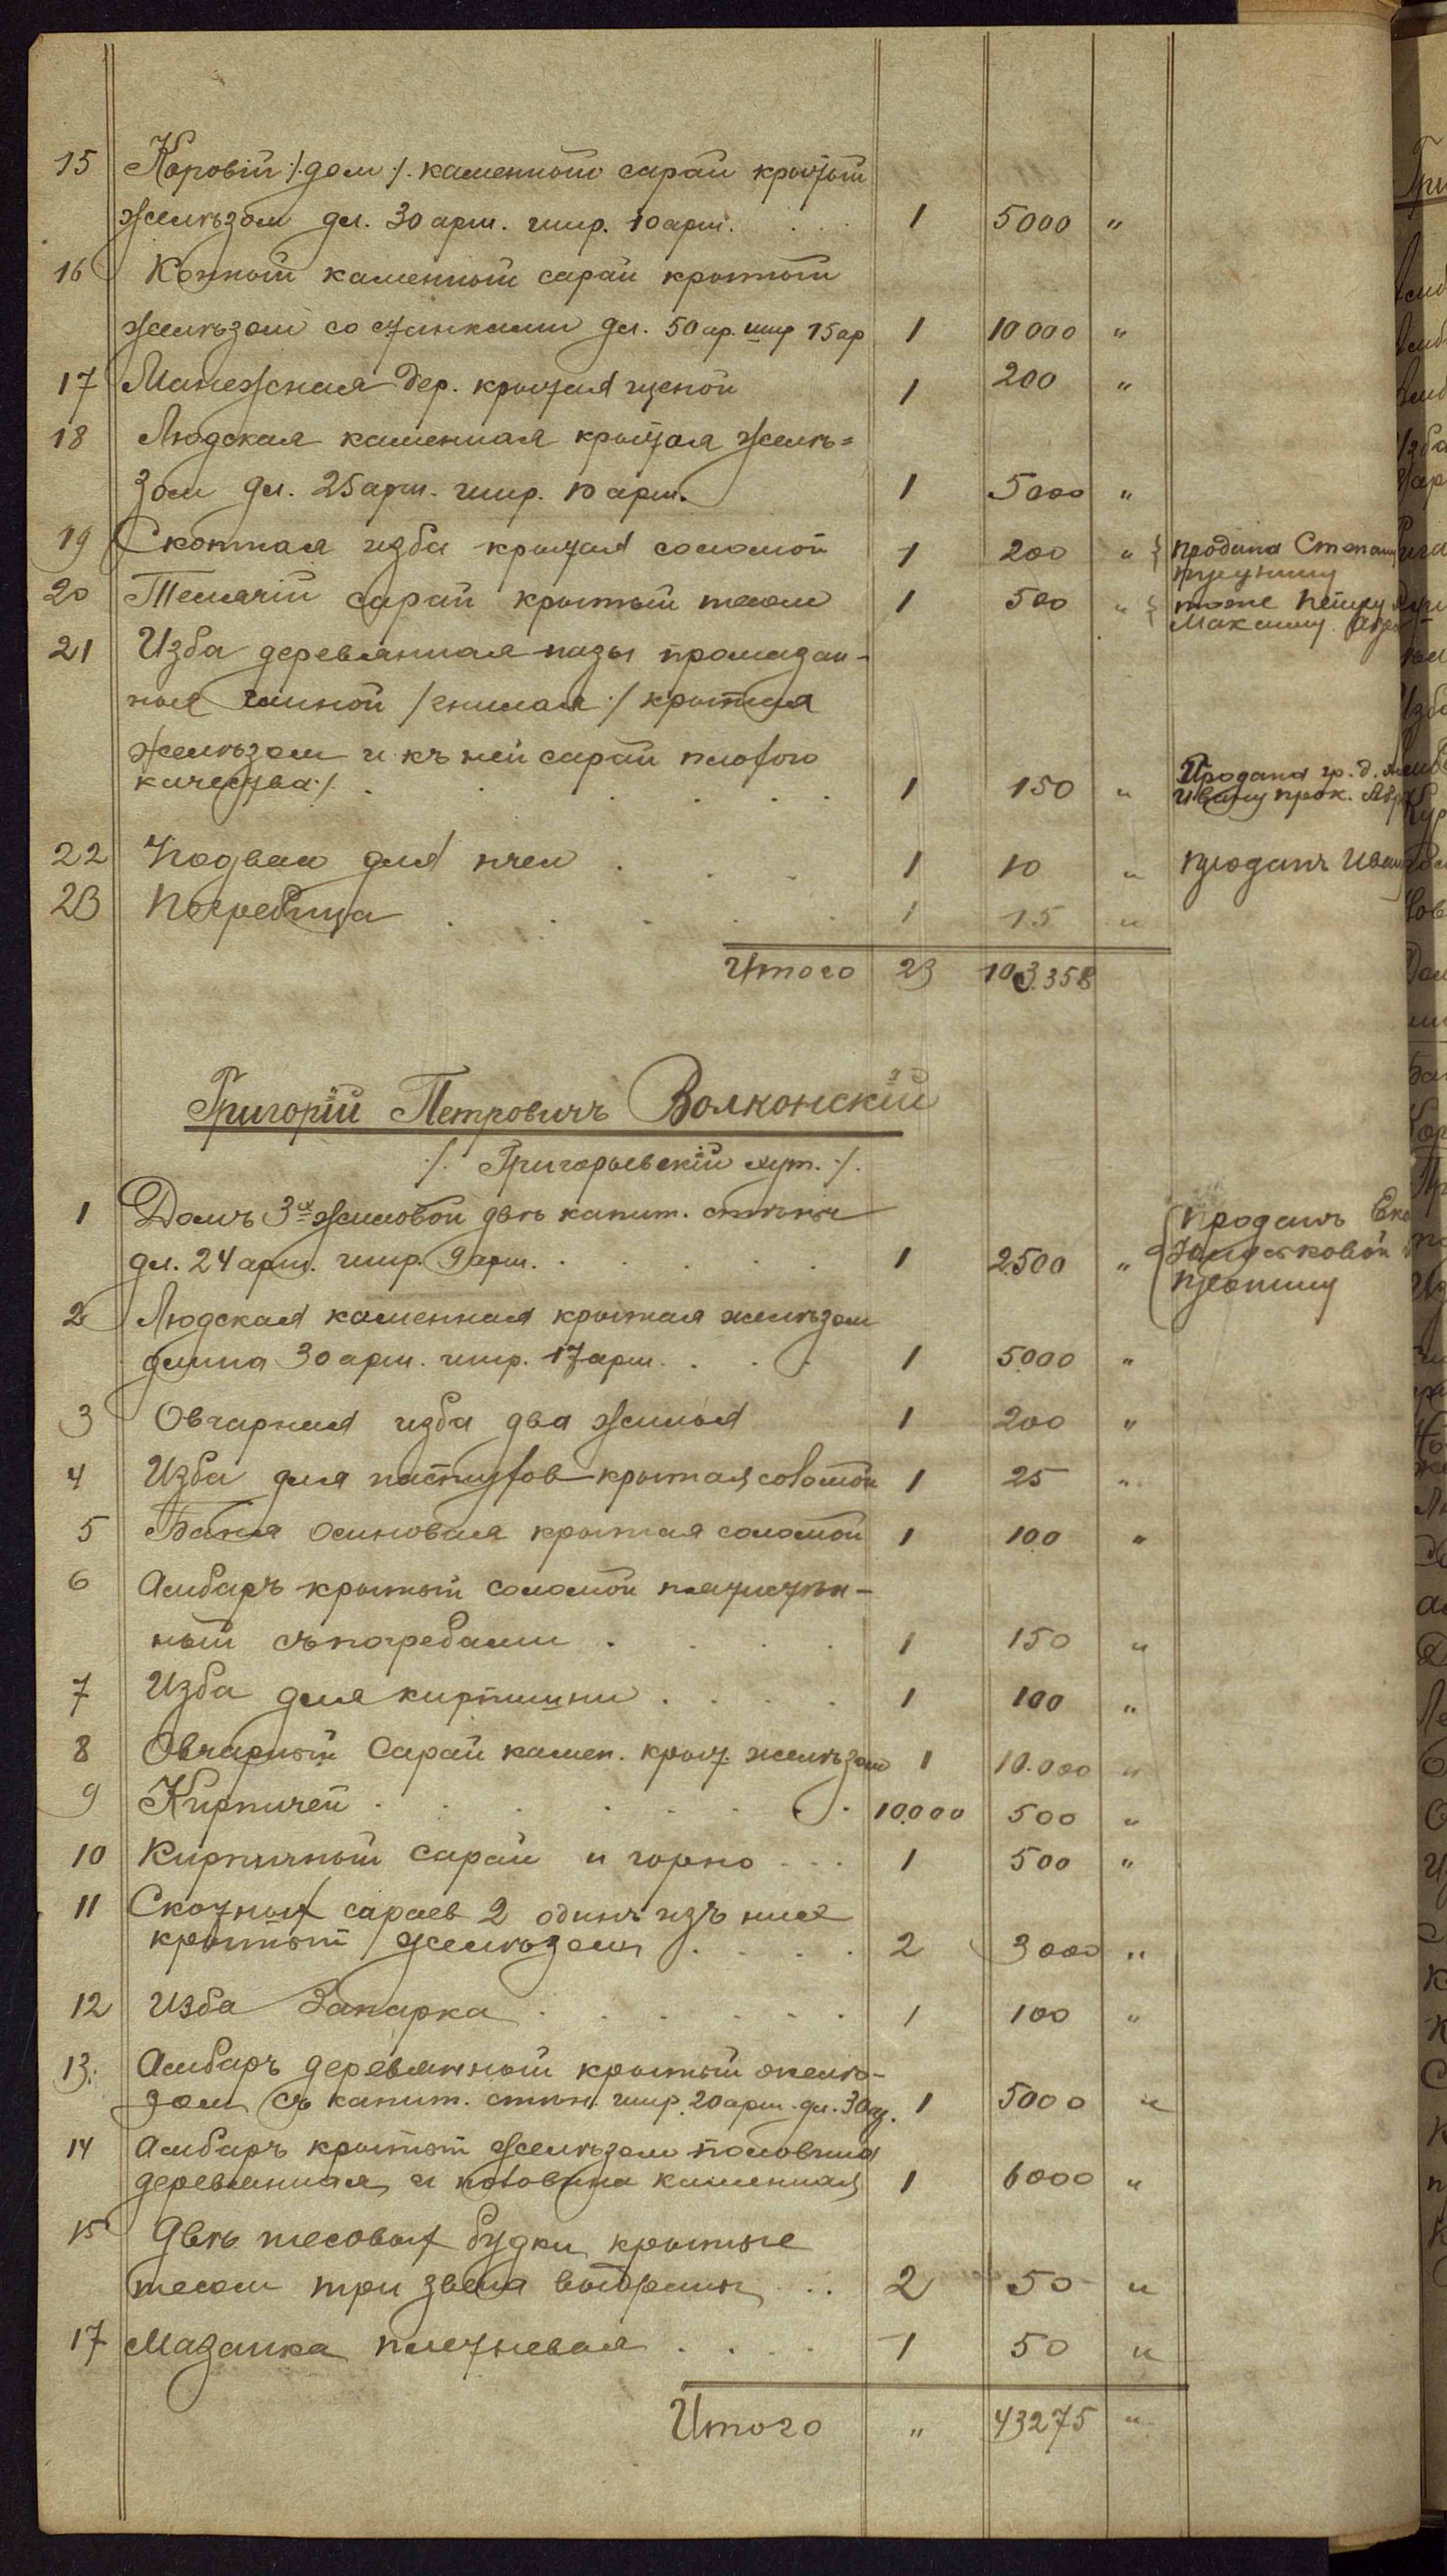 15 Коровій /:дом:/. каменный сарай крытый
желѣзом дл. 30 арш. шир. 10 арш. . . . 1 5000 "
16 Конный каменный сарай крытый
желѣзом со станками дл. 50 ар. шир 15 ар 1 10000 "
17 Манежная дер. крытая щепой 1 200 "
18 Людская каменная крытая желѣ=
зом дл. 25 арш. шир. 10 арш. 1 5000 "
19 Скотная изба крытая соломой 1 200 " продана Степану
20 Телячій сарай крытый тесом 1 500 " тоже Петру
Максиму
21 Изба деревянная пазы промазан-
ныя глиной /гнилая:/ крытая
желѣзом и къ ней сарай плохого
качества:/. . . . . . 1 150 " Продана гр. д.
Ивану прок.
22 Подвал для пчел . . . 1 10 " продан Ивану
23 Погребица . . . . . 1 15 "
Итого 23 103.358
Григорій Петровичъ Волконскій
/. Григорьевскій хут. /.
1 Домъ 3х жиловой двѣ капит. стѣны
дл. 24 арш. шир. 9 арш. . . . . . 1 2500 " продан
2 Людская каменная крытая желѣзом
длина 30 арш. шир. 17 арш. . . . 1 5000 "
3 Овчарная изба два жилья 1 200 "
4 Изба для пастухов крытая соломой 1 25 "
5 Баня осиновая крытая соломой 1 100 "
6 Амбаръ крытый соломой
ный съ погребами . . . . 1 150 "
7 Изба для кирпишни . . . . 1 100 "
8 Овчарный Сарай камен. крыт. желѣзом 1 10.000 "
9 Кирпичей . . . . . . . 10.000 500 "
10 Кирпичный сарай и горно . . . 1 500 "
11 Скотных сараев 2 один изъ них
крытый желѣзом . . . . 2 3000 "
12 Изба Запарка . . . . . . 1 100 "
13. Амбаръ деревянный крытый желѣ-
зом съ капит. стѣн. шир. 20 арш. дл. 30 ар. 1 5000 "
14 Амбаръ крытый желѣзом половина
деревянная и половина каменная 1 6000 "
15 Двѣ тесовых будки крытые
тесом три звена . . 2 50 "
17 Мазанка плетневая . . . . 1 50 "
Итого " 43275 "